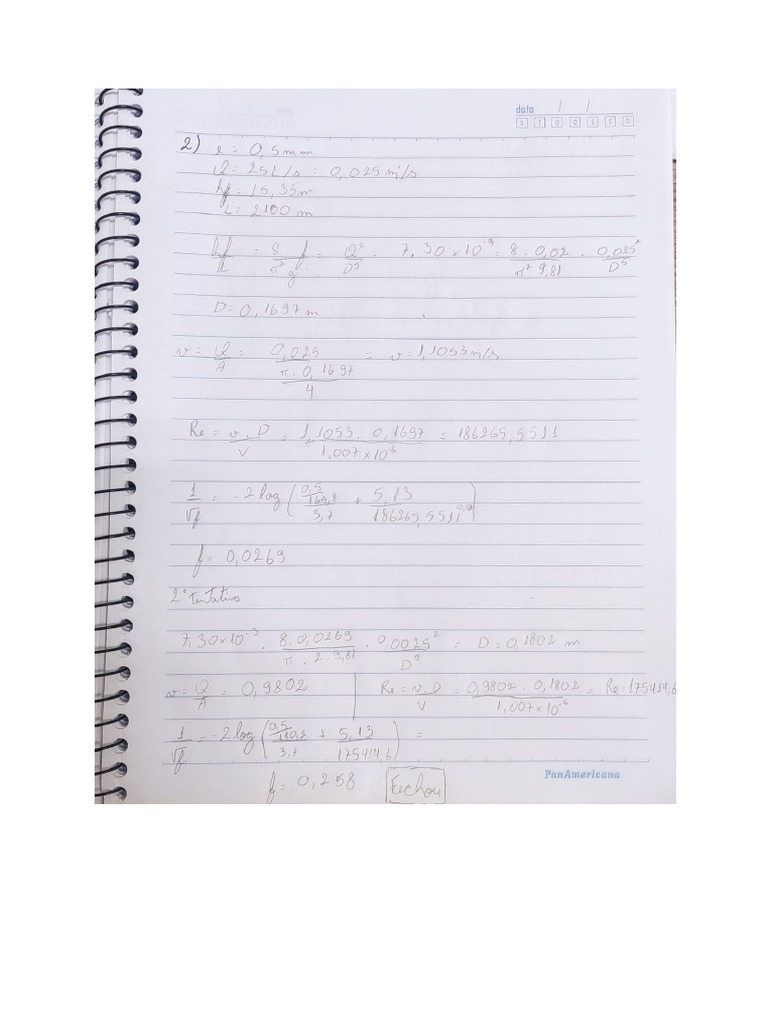 data / /
S T Q Q S S D
2) e = 0,5mm
Q = 25L/s = 0,025 m³/s
hf = 15,35m
L = 2100 m
hf/L = 8/π²g . f = Q²/D⁵ : 7,30×10⁻³ = 8 . 0,02/π² 9,81 . 0,025²/D⁵
D = 0,1697m
v = Q/A = 0,025/(π . 0,1697/4) = v = 1,1053 m/s
Re = v . D/V = 1,1053 . 0,1697/1,007×10⁻⁶ = 186265,5511
1/√f = -2log((0,5/169,8)/3,7 + 5,13/186265,5511)
f = 0,0269
2° tentativa
7,30×10⁻³ . 8.0,0269/π . 2 . 9,81 . 0,0025²/D⁵ = D = 0,1802 m
v = Q/A = 0,9802 | Re = v.D/V = 0,9802 . 0,1802/1,007×10⁻⁶ = Re = 175414,6
1/√f = -2log((0,5/180,2)/3,7 + 5,13/175414,6) =
f = 0,258 Fechou
PanAmericana